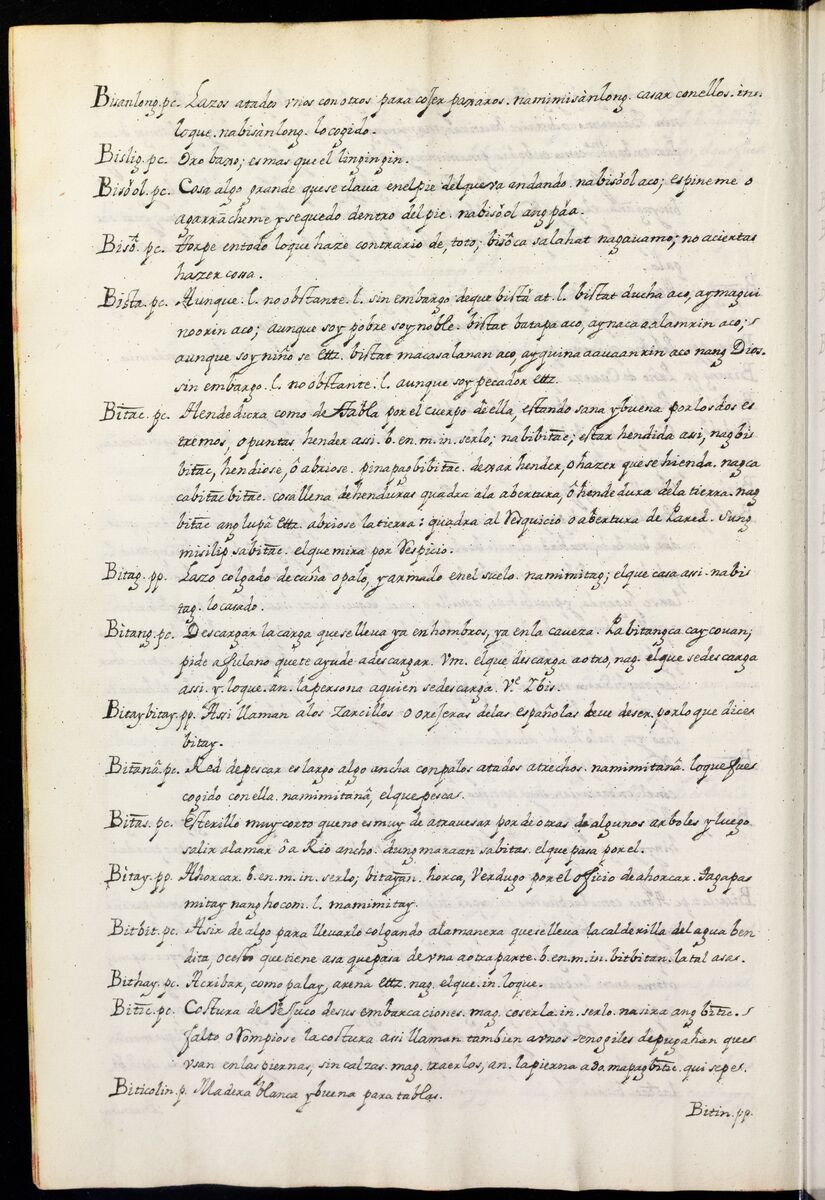 Bisanlong. pc. Lazos atados vnos con otros para cojer paxaros. namimisànlong. casar con ellos. in.
lo que. nabisànlong. lo cogido.
Bislig. pc. Oro baxo; es mas que el lingingin.
Bisŏol. pc. Cosa algo grande que se claua en el pie del que va andando. nabisŏol aco; espineme o
agarrãcheme y se quedo dentro del pie. nabisŏol ang pãa.
Bisõt. pc. Torpe en todo lo que haze contrario de, toto; bisõt ca sa lahat nagauamo; no aciertas
hazer cossa.
Bista. pc. Aunque. l. no obstante. l. sin embargo de que bistã at. l. bistat ducha aco, ay magui
noorin aco; aunque soy pobre soy noble. bistat batapa aco, ay naca aalamrin aco;
aunque soy niño se ettz. bistat macasalanan aco, ay quinaaauaanrin aco nang Dios.
sin embargo. l. no obstante. l. aunque soy pecador ettz.
Bitac. pc. Hendedicra como de tabla por el cuerpo de ella, estando sana y buena por los dos es
tremos, o puntas hender assi. b. en. m. in. serlo; nabibitac; estar hendida asi, nagbi
bitac, hendiose, ô abriose. pinapagbibitac. dexar hender, o hazer que se hienda. nagca
cabitac bitac. cosa llena de henduras quadra a la abertura, ô hendedura de la tierra. nag
bitac ang lupã ettz. abriose la tierra: quadra al resquicio o abertura de Pared. Sung
misilip sa bitac. el que mira por respicio.
Bitag. pp. Lazo colgado de cuña o palo, y armado en el suelo. namimitag; el que casa assi. nabi
tag. lo casado.
Bitang. pc. Descargar la carga que se lleva ya en hombros, ya en la caveza. Pabitang ca cay couan;
pide a fulano que te ayude a descargar. vm. el que descarga a otro, nag. el que se descarga
assi. y. lo que. an. la persona a quien se descarga. Vᵉ. Ibis.
Bitaybitay. pp. Assi llaman a los zarcillos o orejeras de las españolas deue de ser. por lo que dicen
bitay.
Bitanã. pc. Red de pescar es largo algo ancha con palos atados a trechos. namimitanã. lo que fue
cogido con ella. namimitanã, el que pesca.
Bitas. pc. Esterillo muy corto que no es muy de atravesar por de otras de algunos arboles y luego
salir a la mar ô a Rio ancho. dung maraan sa bitas. el que pasa por el.
Bitay. pp. Ahorcar. b. en. m. in. serlo; bitayan. horca, Verdugo por el oficio de ahorcar. Tagapa
mitay nang hocom. l. mamimitay.
Bitbit. pc. Asir de algo para llevarlo colgando a la manera que se lleva la calderilla del agua ben
dita, o cesto que tiene asa que pasa de vna a otra parte. b. en. m. in. bitbitan. la tal asas.
Bithay. pc. Acribar, como palay, arena ettz. nag. el que. in. lo que.
Bitic. pc. Costura de Vejuco de sus embarcaciones. mag. coserla. in. serlo. nasira ang bitic.
falto o rompiose la costura assi llaman tambien a vnos senogiles de pugahan que
vsan en las piernas, sin calzas. mag. traerlos, an. la pierna ado. mapagbitic. qui sepe.
Biticolin. p. Madera blanca y buena para tablas.
Bitin. pp.